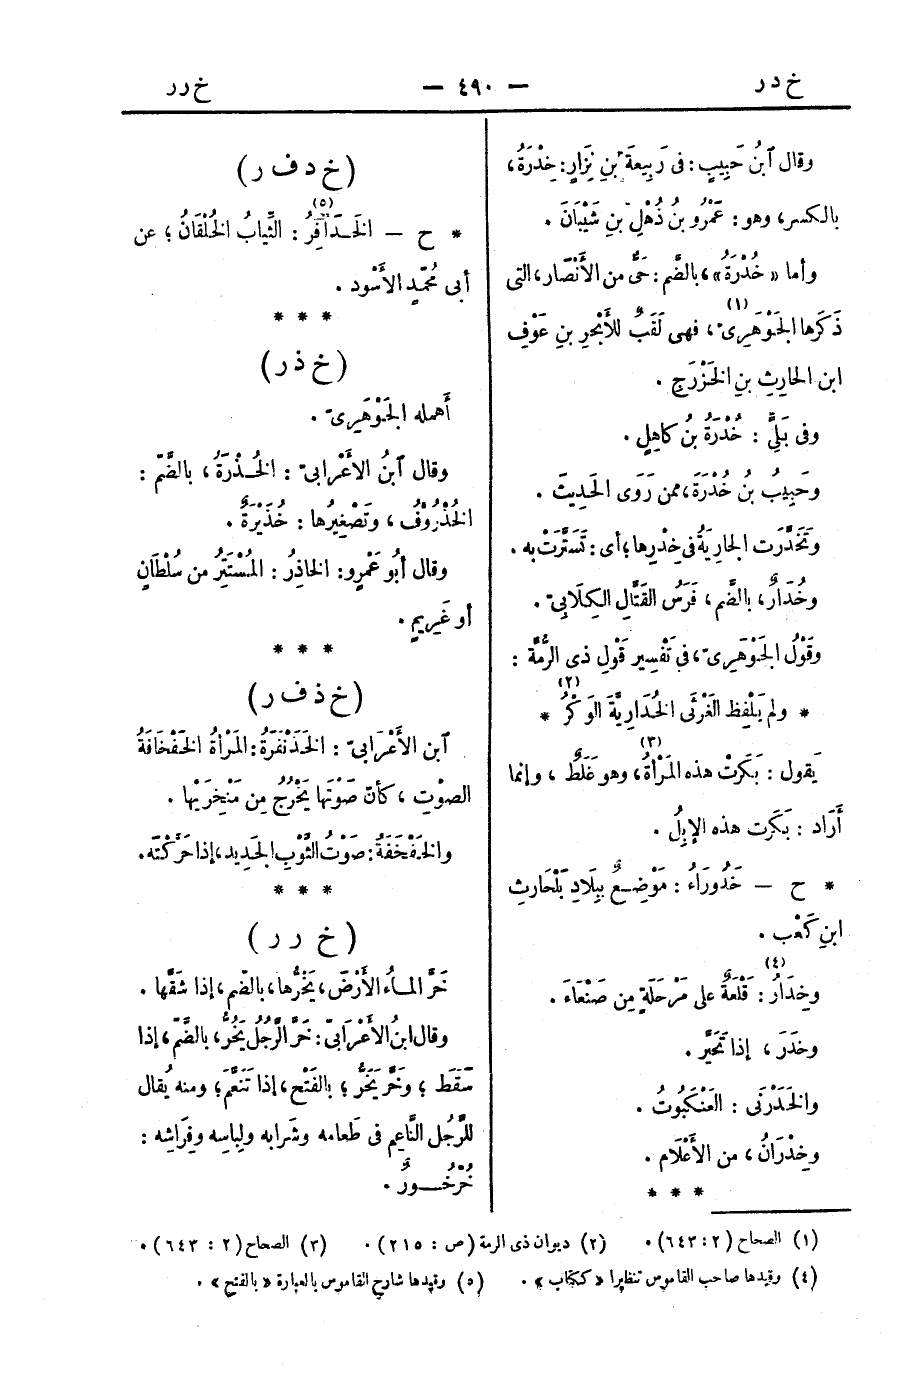 خ در
— ٤٩٠ —
خ رر
وقال ٱبنُ حَبِيبٍ : فى رَبِيعةَ بنِ نِزارٍ : خِدْرَةُ ،
بالكسر، وهو : عَمْرُو بنُ ذُهْلِ بنِ شَيْبَانَ .
وأما « خُدْرَةُ» ، بالضَّم : حَىٌّ من الأَنْصَار ، التى
ذَكَرها الجَوْهَرِىّ (١) ، فهى لَقَبٌ للأَبْجرِ بنِ عَوْفِ
ابن الحارِثِ بنِ الخَزْرَجِ .
وفى بَلِىٍّ : خُدْرَةُ بنُ كاهِلٍ .
وحَبِيبُ بنُ خُدْرَةَ ، ممن رَوَى الحَدِيثَ .
وتَخَدَّرَت الجارِيَةُ فى خِدْرِها ؛ أى : تَسَتَّرَتْ به .
وخُدَارٌ ، بالضَّم ، فَرَسُ القَتَّالِ الكِلَابِىّ .
وقَوْلُ الجَوْهَرِىّ ، فى تَفْسِير قَوْلِ ذى الرُّمَّة :
* ولم يَلْفِظِ الغَرْثَى الخُدَارِيَّةَ الوَكْرُ (٢) *
يَقول : بَكَرتْ هذه المَرْأَةُ (٣) ، وهو غَلَطٌ ، وإنما
أَرَاد : بَكَرَت هذه الإبِلُ .
* ح — خَدُورَاءُ : مَوْضِعٌ بِبِلَادِ بَلْحَارِثِ
ابنِ كَعْب .
وخِدَارُ (٤) : قَلْعَةٌ على مَرْحَلَةٍ مِن صَنْعَاءَ .
وخَدَرَ ، إذا تَحَيَّر .
والخَدَرْنَى : العَنْكَبُوتُ .
وخِدْرَانُ ، من الأَعْلَام .
* * *
(خ د ف ر)
* ح — الخَدَافِرُ (٥) : الثِّيابُ الخُلْقَانُ ؛ عن
أبى مُحمّدٍ الأَسْود .
* * *
(خ ذ ر)
أَهمله الجَوْهَرِىّ .
وقال ٱبنُ الأَعْرابىّ : الخُذْرَةُ ، بالضَّم :
الخُذْرُوفُ ، وتَصْغِيرُها : خُذَيْرَةٌ .
وقال أبُو عَمْرٍو : الخاذِرُ : المُسْتَتِرُ من سُلْطَانٍ
أو غَرِيمٍ .
* * *
(خ ذ ف ر)
ٱبن الأَعْرَابىّ : الخَذَنْفَرَةُ : المَرْأَةُ الخَفْخَافَةُ
الصوْتِ ، كأنّ صَوْتَها يَخْرُجُ مِن مَنْخِرَيْها .
والخَفْخَفَةُ : صَوْتُ الثَّوْبِ الجَدِيد ، إذا حَرّكْتَه .
* * *
(خ ر ر)
خَرَّ المـاءُ الأَرْضَ ، يَخُرُّها ، بالضّم ، إذا شَقَّها .
وقال ابنُ الأَعْرَابىّ : خَرَّ الرَّجُلُ يَخُرُّ ، بالضَّمّ ، إذا
سَقَط ؛ وخَرَّ يَخَرُّ ؛ بالفَتْح ، إذا تَنَعَّمَ ؛ ومنه يُقال
للرَّجُل النَّاعِم فى طَعامه وشَرابه ولِباسِه وفِراشِه :
خُرْخُــورٌ .
(١) الصحاح (٢ : ٦٤٣) . (٢) ديوان ذى الرمة (ص : ٢١٥) . (٣) الصحاح (٢ : ٦٤٣) .
(٤) وقيدها صاحب القاموس تنظيرا « ككتاب » . (٥) وقيدها شارح القاموس بالعبارة « بالفتح » .